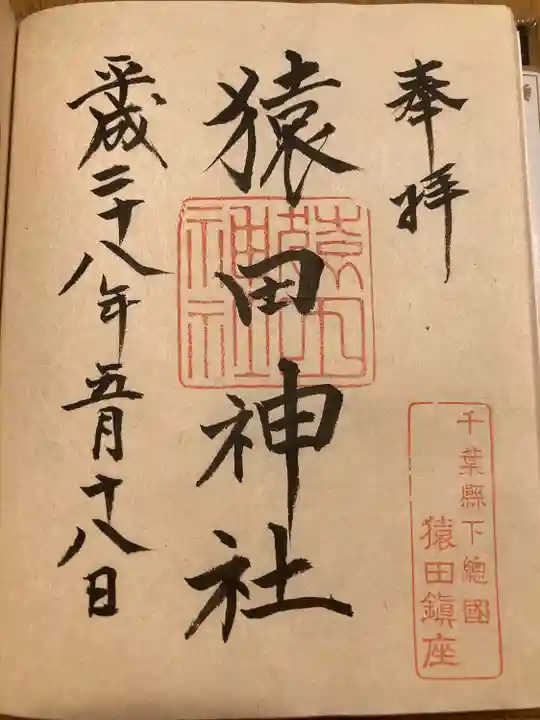 奉拝
千葉縣下總國
猿田鎭座
猿田神社
猿田神社
平成二十八年五月十八日